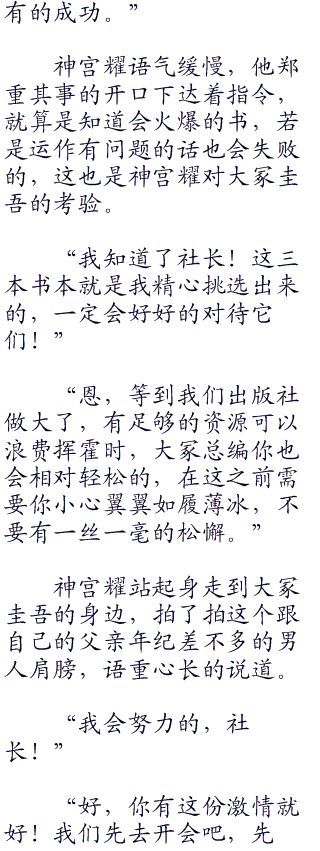 有的成功。”
神宫耀语气缓慢，他郑
重其事的开口下达着指令，
就算是知道会火爆的书，若
是运作有问题的话也会失败
的，这也是神宫耀对大冢圭
吾的考验。
“我知道了社长！这三
本书本就是我精心挑选出来
的，一定会好好的对待它
们！”
“恩，等到我们出版社
做大了，有足够的资源可以
浪费挥霍时，大冢总编你也
会相对轻松的，在这之前需
要你小心翼翼如履薄冰，不
要有一丝一毫的松懈。”
神宫耀站起身走到大冢
圭吾的身边，拍了拍这个跟
自己的父亲年纪差不多的男
人肩膀，语重心长的说道。
“我会努力的，社
长！”
“好，你有这份激情就
好！我们先去开会吧，先